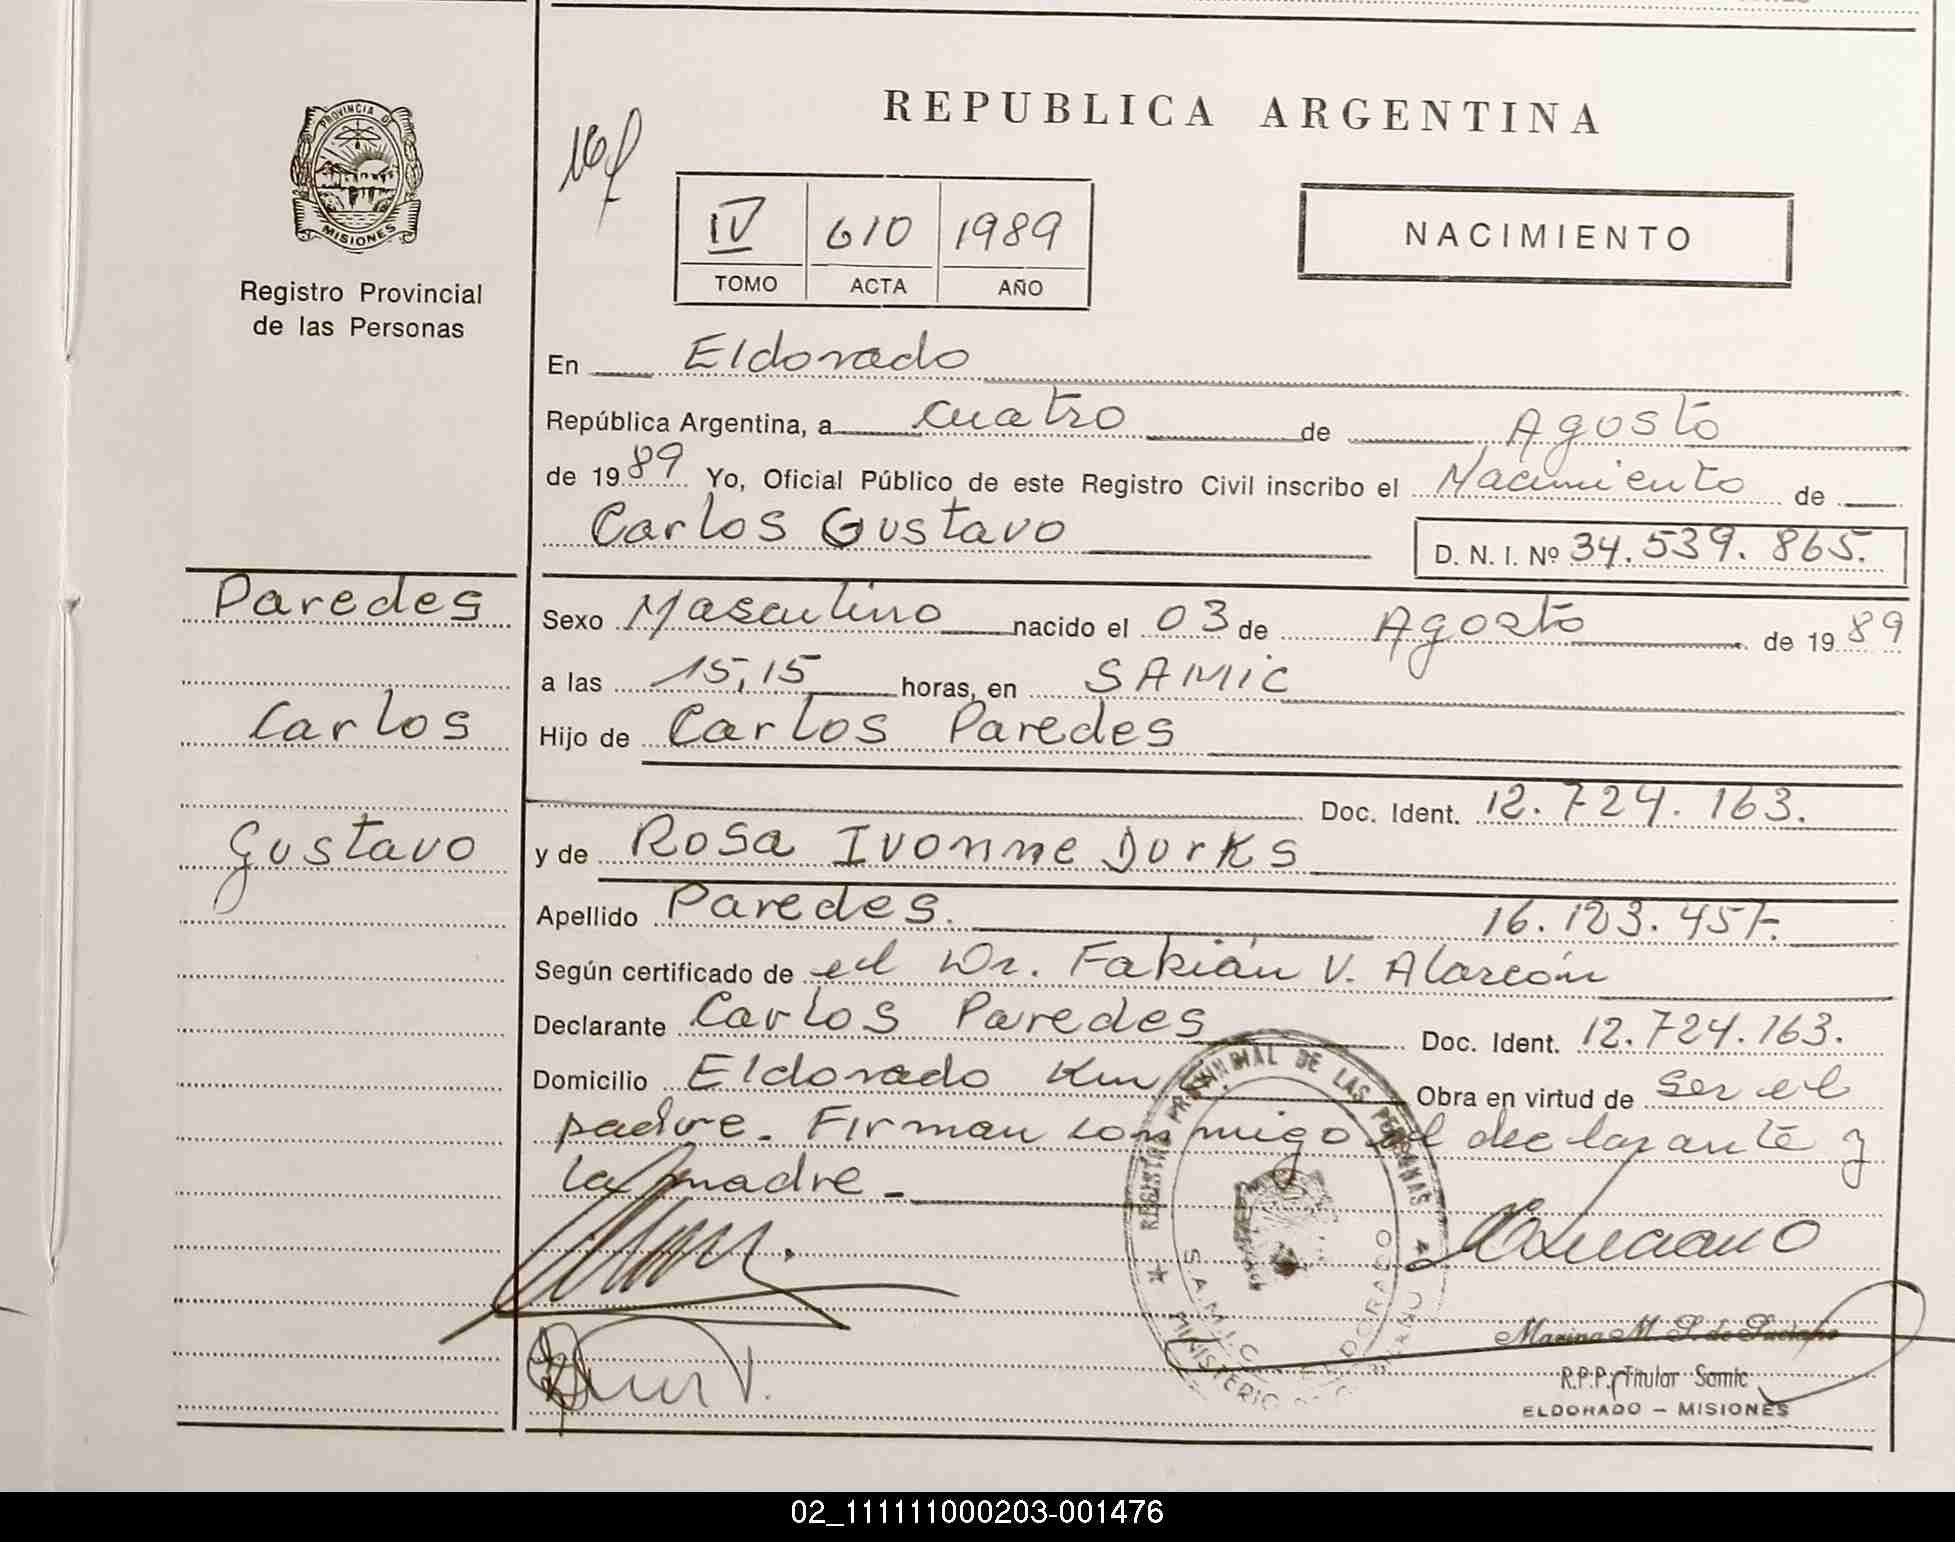 REPUBLICA ARGENTINA
PROVINCIA DE
MISIONES
Registro Provincial
de las Personas
IV 610 1989
TOMO ACTA AÑO
NACIMIENTO
En Eldorado
República Argentina, a cuatro de Agosto
de 1989 Yo, Oficial Público de este Registro Civil inscribo el Nacimiento de
Carlos Gustavo D. N. I. Nº 34.539.865.
Paredes
Carlos
Gustavo
Sexo Masculino nacido el 03 de Agosto de 1989
a las 15,15 horas, en SAMIC
Hijo de Carlos Paredes
Doc. Ident. 12.724.163.
y de Rosa Ivonne Durks
Apellido Paredes. 16.123.457.
Según certificado de el Dr. Fabián V. Alarcón
Declarante Carlos Paredes Doc. Ident. 12.724.163.
Domicilio Eldorado Km Obra en virtud de ser el
padre. Firman conmigo el declarante y
la madre
REGISTRO PROVINCIAL DE LAS PERSONAS
S.A.M.I.C. ELDORADO
MINISTERIO
Marina M. S. de Luciano
R.P.P. Titular Samic
ELDORADO - MISIONES
02_111111000203-001476